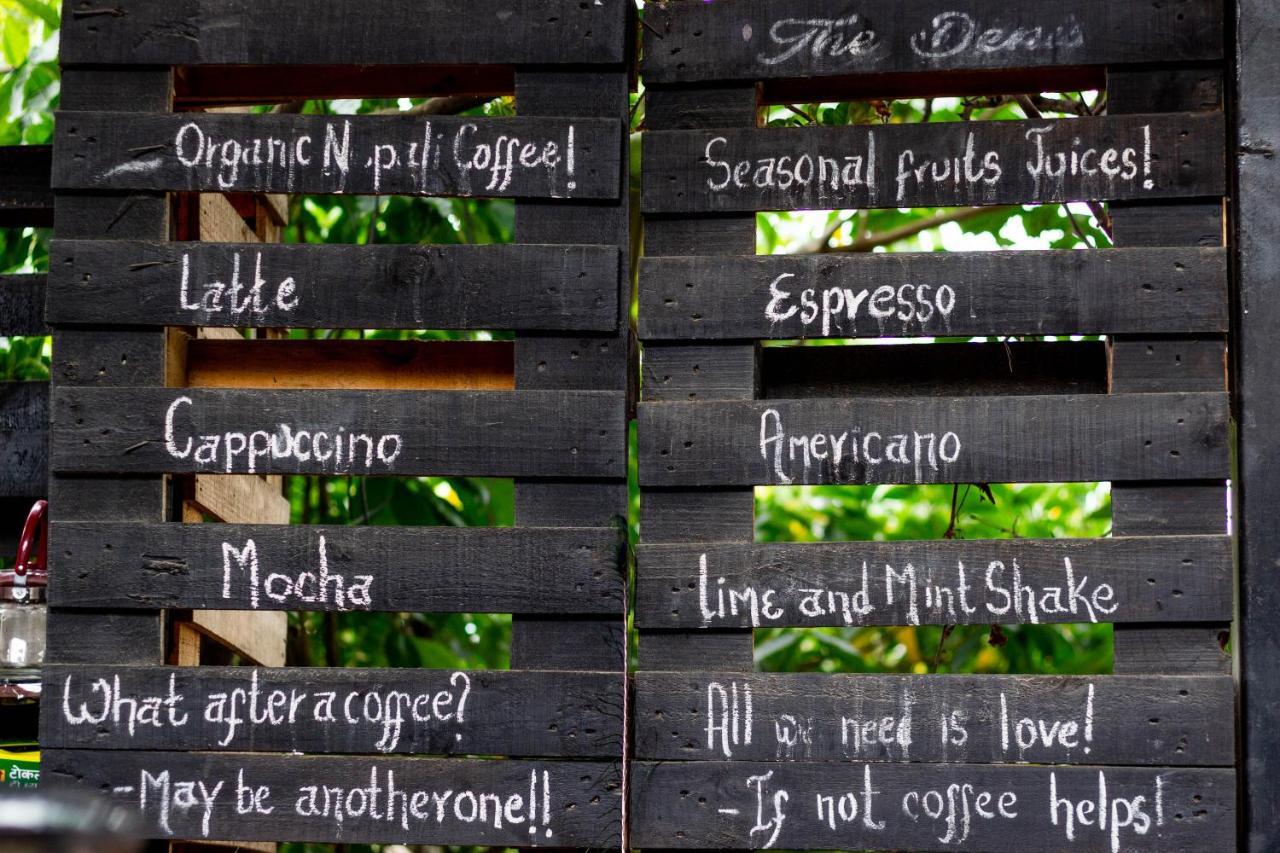 Organic N pali Coffee!
Latte
Cappuccino
Mocha
What after a coffee?
- May be another one!!
टोकल
The
Seasonal fruits Juices!
Espresso
Americano
Lime and Mint Shake
All we need is love!
- If not coffee helps!